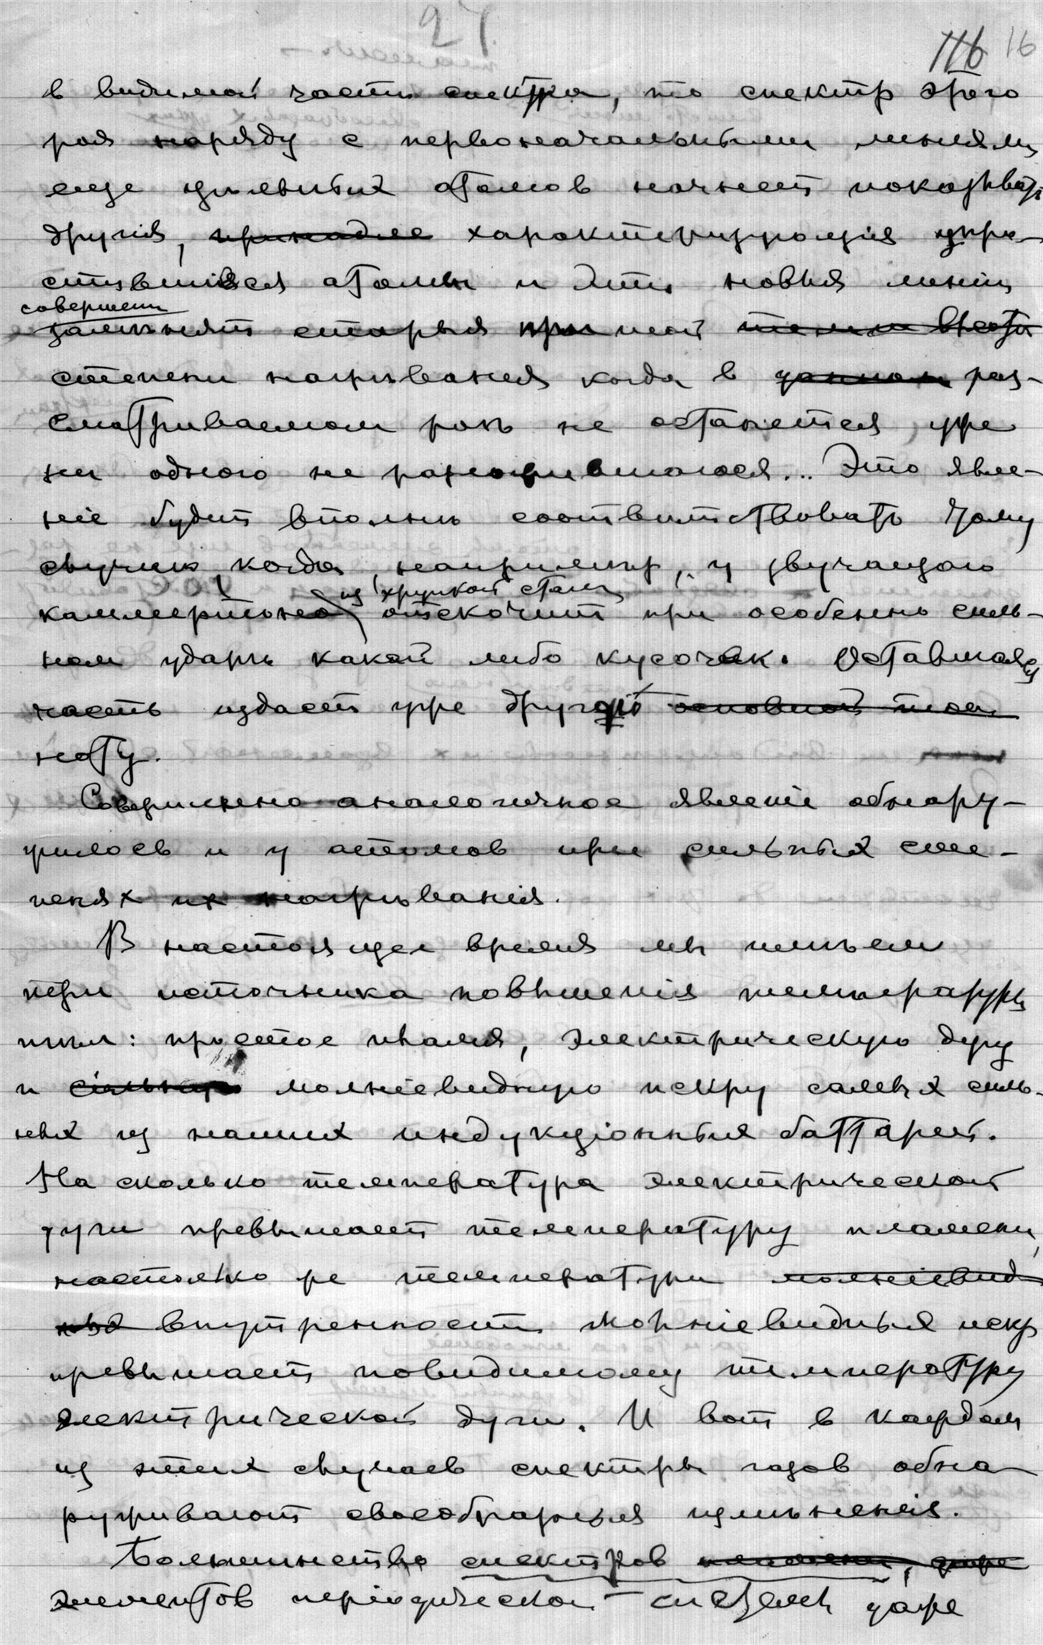 27
116 16
в видимой части спектра, то спектр этого
роя наряду с первоначальными линіями
еще цѣльных атомов начнет показывать
другія, принадле характеризующія упро-
стившіяся атомы и эти новыя линіи
совершенно
замѣнят старыя при той
степени нагрѣванія когда в данном раз-
сматриваемом роѣ не останется уже
ни одного не разложившагося... Это явле-
ніе будет вполнѣ соответствовать тому
случаю, когда, напримѣр, у звучащаго
из хрупкой стали
каммертона отскочит при особенно силь-
ном ударѣ какой либо кусочек. Оставшаяся
часть издаст уже другую основной тон
ноту.
Совершенно аналогичное явленіе обнару-
жилось и у атомов при сильных сте-
пенях их нагрѣванія.
В настоящее время мы имѣем
три источника повышенія температуры
: простое пламя, электрическую дугу
и сильную молніевидную искру самых силь-
ных из наших индукціонных баттарей.
На сколько температура электрической
дуги превышает температуру пламени,
настолько же температура молніевид
ных внутренности молніевидных искр
превышает повидимому температуру
электрической дуги. И вот в каждом
из этих случаев спектры газов обна-
руживают своеобразныя измѣненія.
Большинство спектров
элементов періодической системы даже